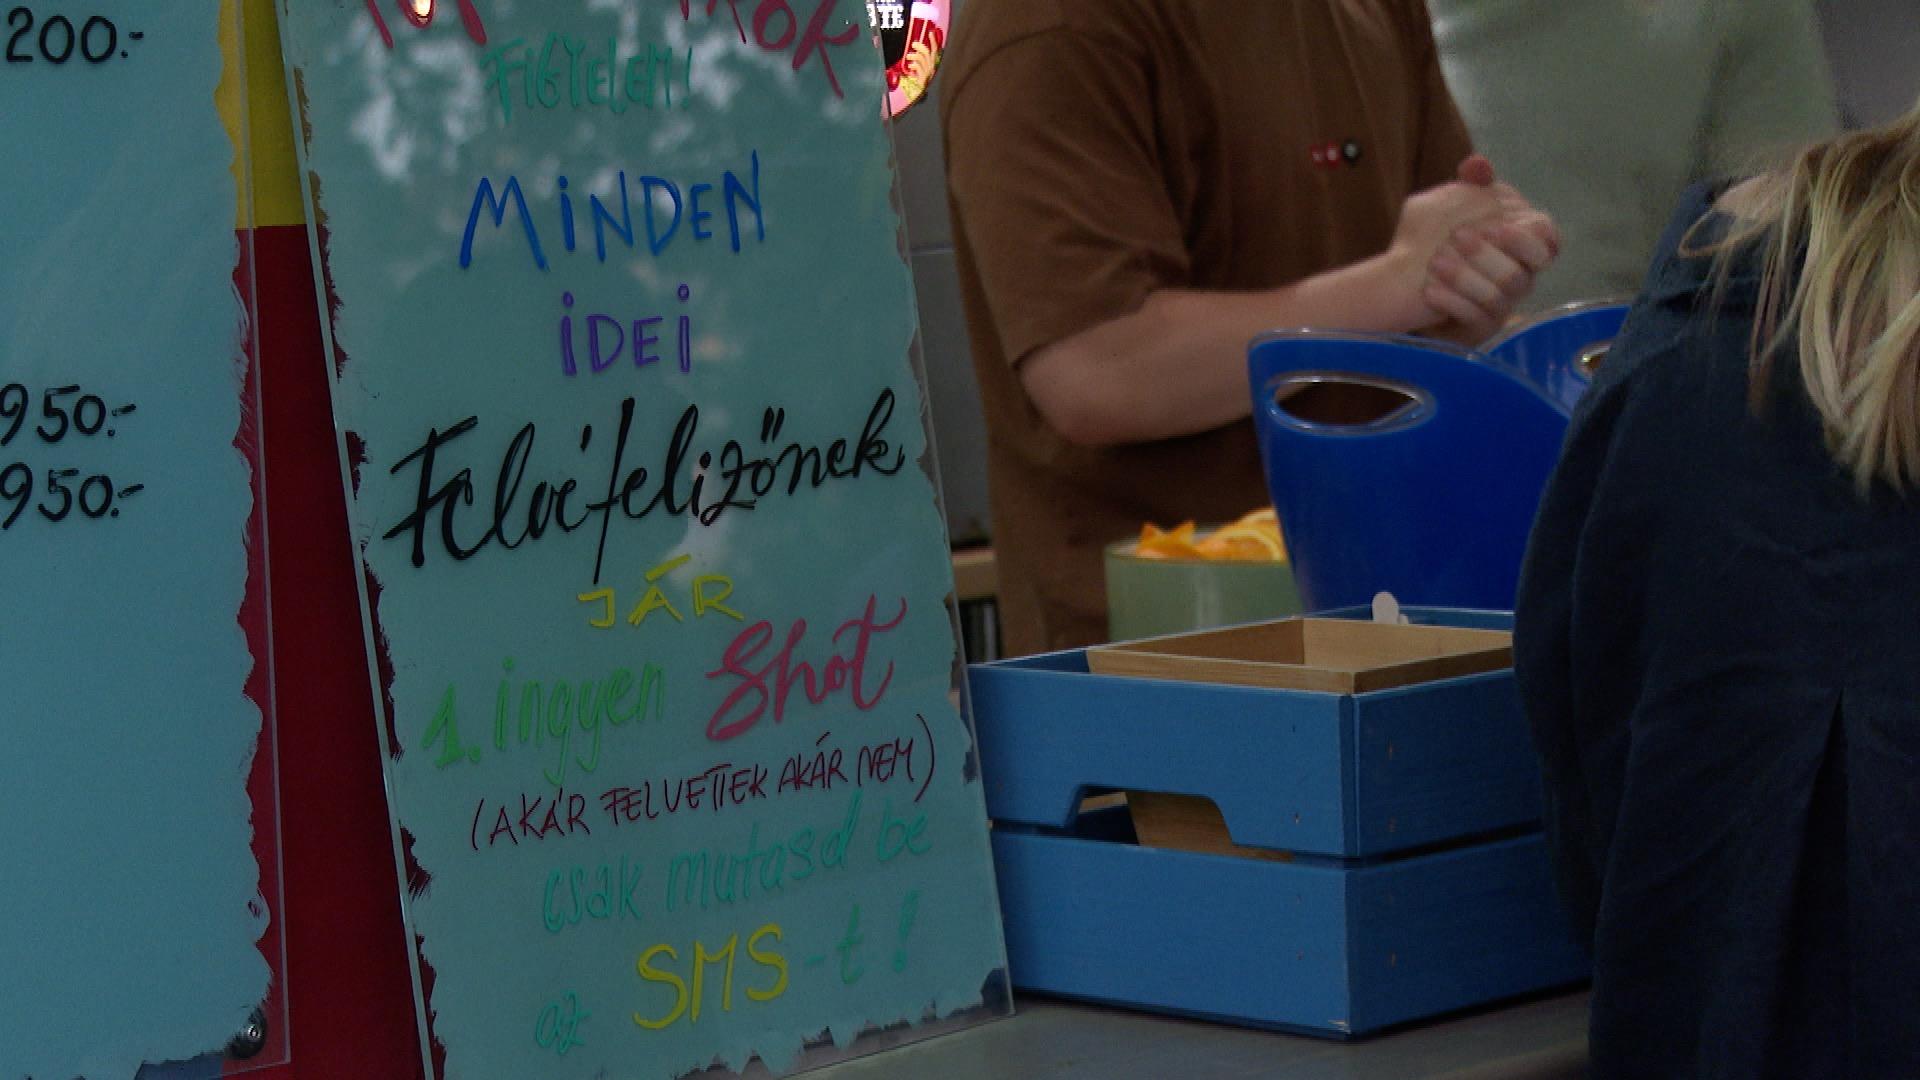 200.-
950.-
950.-
FIGYELEM!
MINDEN
IDEI
Felvételizőnek
JÁR
1. ingyen Shot
(AKÁR FELVETTEK AKÁR NEM)
csak mutasd be
az SMS-t!